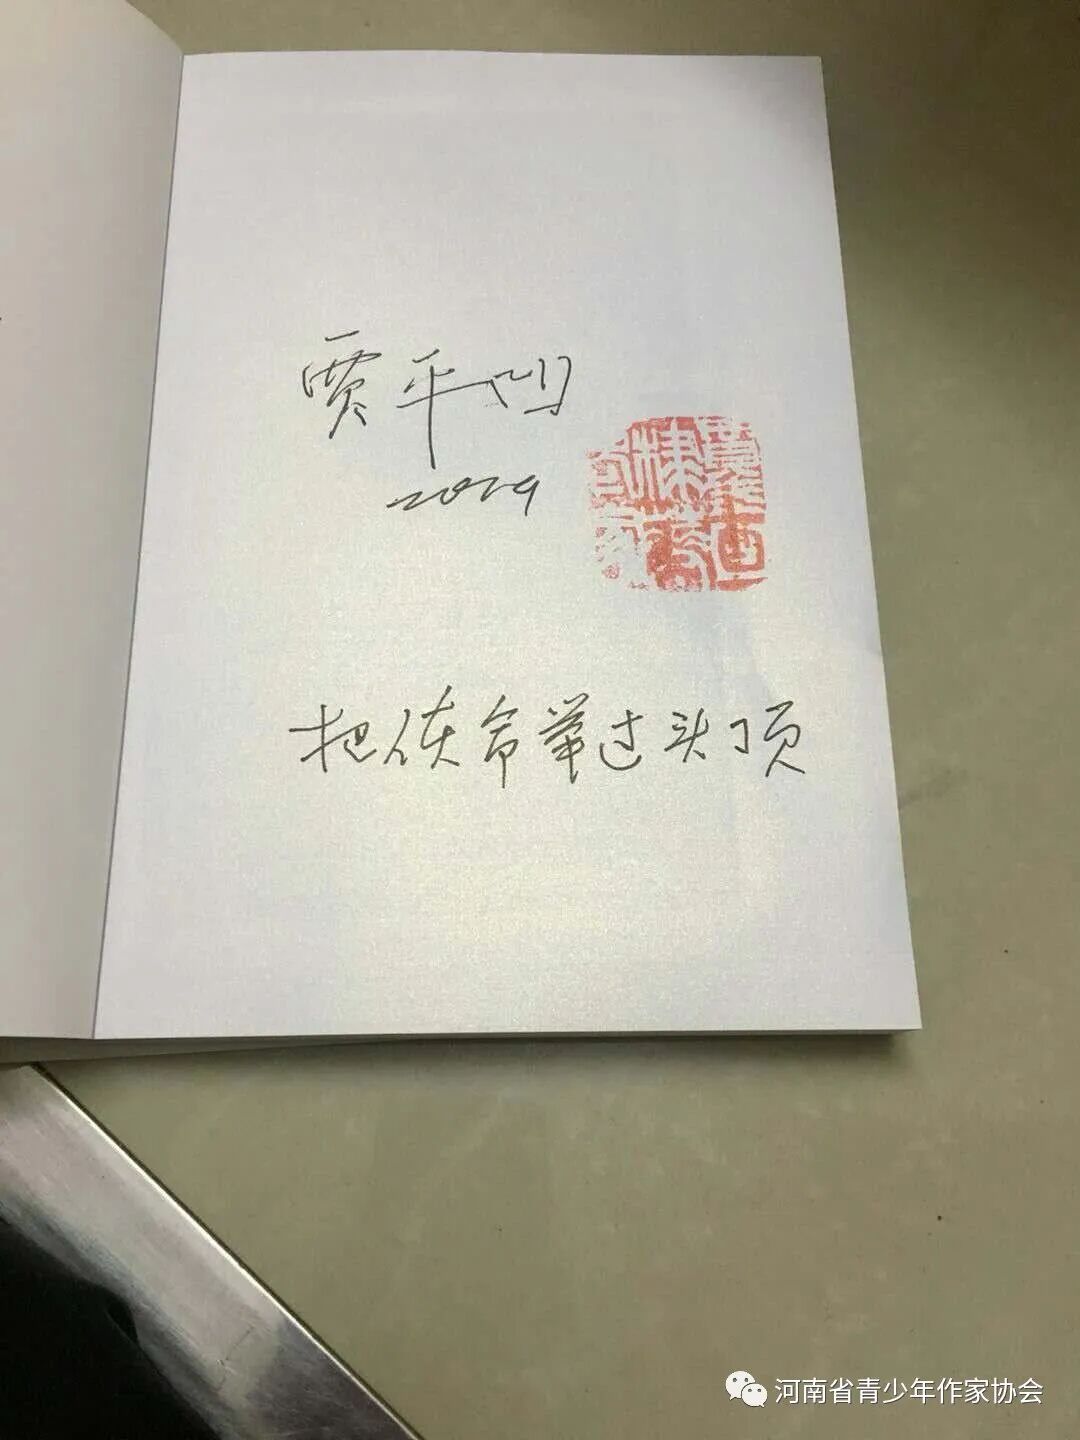 贾平凹
2019
把使命举过头顶
河南省青少年作家协会